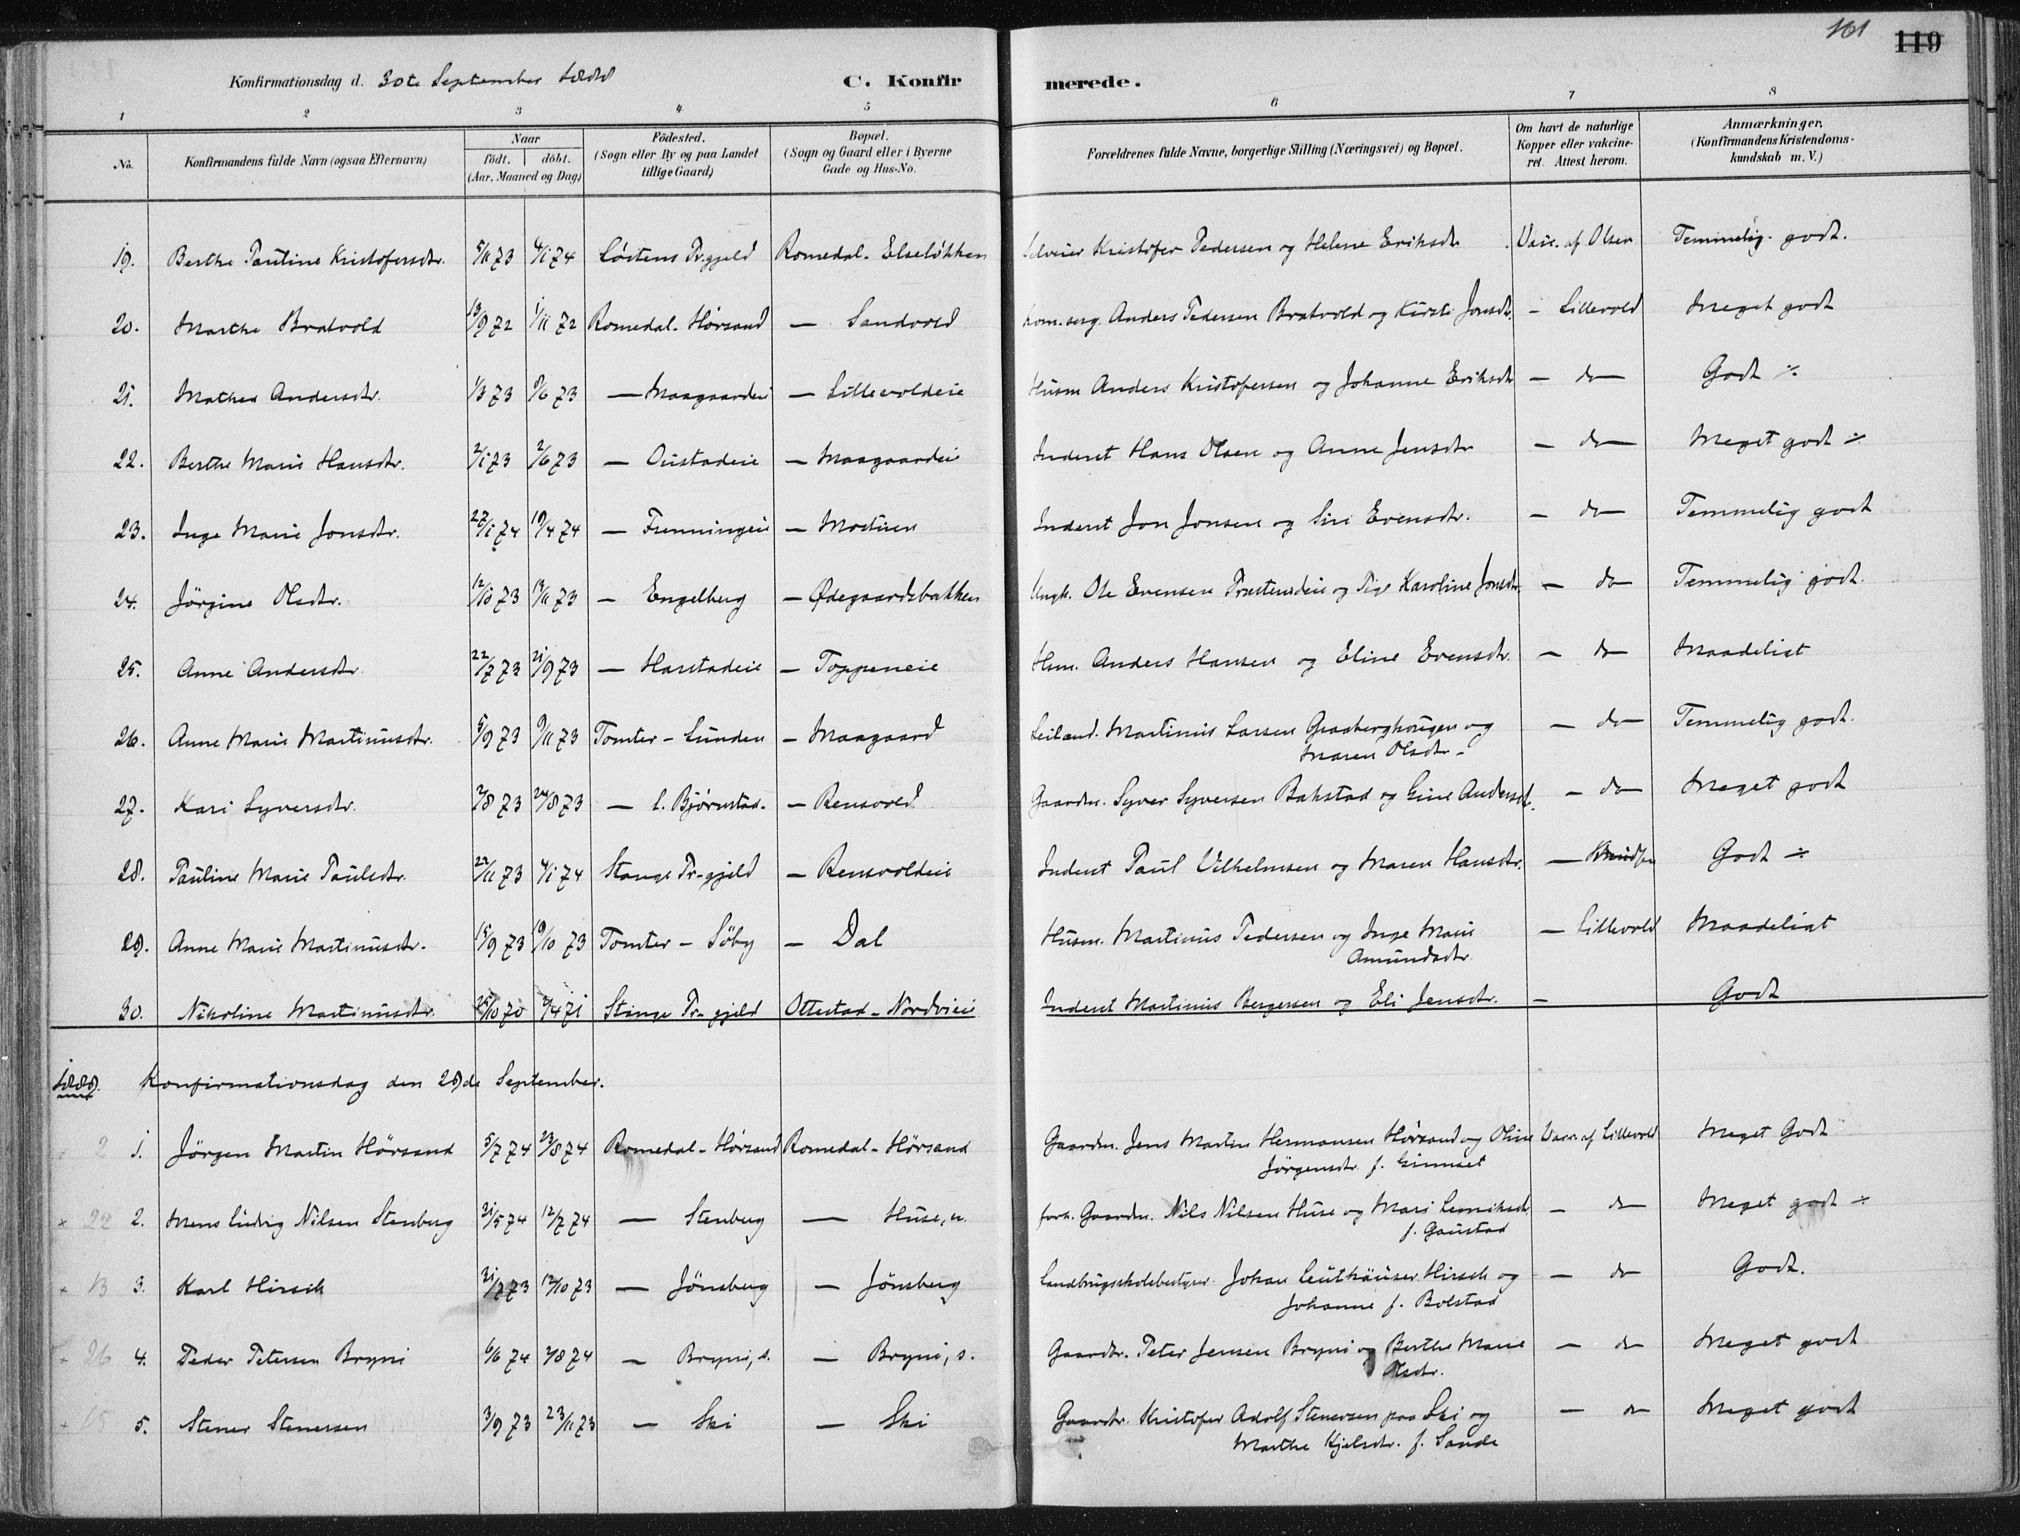 161 119
Konfirmationsdag d. 30te September 1888 C. Konfirmerede.
1 2 3 4 5 6 7 8
No. Konfirmandens fulde Navn (ogsaa Efternavn) Naar födt. döbt. (Aar, Maaned og Dag) Födested. (Sogn eller By og paa Landet tillige Gaard) Bopæl. (Sogn og Gaard eller i Byerne Gade og Hus-No. Forældrenes fulde Navne, borgerlige Stilling (Næringsvei) og Bopæl. Om havt de naturlige Kopper eller vakcineret. Attest herom. Anmærkninger. (Konfirmandens Kristendomskundskab m. V.)
19. Berthe Pauline Kristofersdtr. 5/11 73 4/1 74 Løitens Pr.gjeld Romedal - Elseløkken Selveier Kristofer Pedersen og Helene Eriksdtr Vacc. af Olsen Temmelig godt.
20. Marthe Bratvold 13/9 72 1/11 72 Romedal - Hørsand — Sandvold Anders Pedersen Bratvold og Kirsti Jonsdtr. - Lillevold Meget godt
21. Mathea Andersdtr. 1/3 73 8/6 73 — Maagaardeie — Lillevoldeie Husm Anders Kristofersen og Johanne Eriksdtr — do — Godt ÷
22. Berthe Marie Hansdtr. 2/1 73 2/6 73 — Oustadeie — Maagaardeie Inderst Hans Olsen og Anne Jensdtr — do — Meget godt ÷
23. Inge Marie Jonsdtr. 22/1 74 19/4 74 — Frenningeie — Mostuen Inderst Jon Jonsen og Siri Evensdtr. — do — Temmelig godt
24. Jörgine Olsdtr. 12/10 73 13/11 73 — Engelberg — Ødegaardsbakken Ungk. Ole Evensen Præstensdeie og Pige Karoline Jonsdtr. — do Temmelig godt.
25. Anne Andersdtr. 22/7 73 21/9 73 — Harstadeie — Toppeneie Hsm. Anders Hansen og Eline Evensdtr. — do — Maadeligt
26. Anne Marie Martinusdtr. 5/9 73 9/11 73 Tomter - Lunden — Maagaard Leilænd. Martinus Larsen Graaberghougen og — do — Temmelig godt.
Maren Olsdtr -
27. Kari Syversdtr. 2/8 73 24/8 73 — l. Bjørnstad — Rensvold Gaardm. Syver Syversen Bakstad og Gine Andersdt. — do — Meget godt
28. Pauline Marie Paulsdtr. 22/11 73 4/1 74 Stange Pr-gjeld — Rensvoldeie Inderst Paul Vilhelmsen og Maren Hansdtr. — Godt ÷
29. Anne Marie Martinusdtr. 15/9 73 19/10 73 Tomter - Söby — Dal Husm. Martinus Pedersen og Inge Marie — Lillevold Maadeligt
Amundsdtr
30. Nikoline Martinusdtr. 25/10 70 2/4 71 Stange Pr-gjeld Ottestad - Nordvieie Inderst Martinus Bergersen og Eli Jensdtr. — Godt
1889. Konfirmationsdag den 29de September.
2 1. Jörgen Martin Hörsand 5/7 74 23/8 74 Romedal - Hörsand Romedal - Hörsand Gaardm. Jens Martin Hermansen Hörsand og Oline Vacc. af Lillevold Meget Godt
Jörgensdtr. f. Gimset
× 22 2. Mens Ludvig Nilsen Stenberg 21/5 74 12/7 74 — Stenberg — Huse, n. forh. Gaardm. Nils Nilsen Huse og Mari — do — Meget godt ÷
f. Gaustad
× 13 3. Karl Hirsch 12/10 73 — Jönsberg — Jönsberg Landbrugsskolebestyrer Johan Leuthäuser Hirsch og — do Godt.
Johanne f. Bolstad
× 26 4. Peder Petersen Bryni 6/6 74 2/8 74 — Bryni, s. — Bryni, s. Gaardbr. Peter Jensen Bryni og Berthe Marie — do Meget godt
Olsdtr.
× 15 5. Stener Stenersen 3/9 73 23/11 73 — Ski — Ski Gaardbr. Kristofer Adolf Stenersen paa Ski og — do Meget godt
Marthe Kjelsdtr. f. Sande